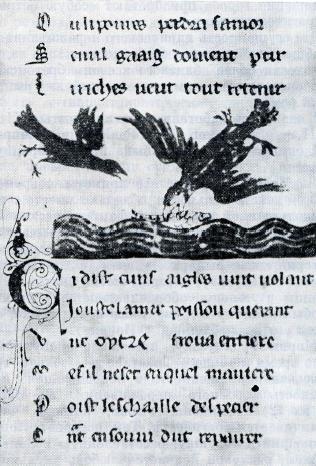 P uis poures perdra samor
S euil gaaig doivent ptir
L i riches veut tout retenir
C i dist cuns aigles vint volant
J ouste lamer poisson querant
V ne oystre trova entiere
M es il neset en quel maniere
P oist leschaille despecier
C ment en souvin dut repairer